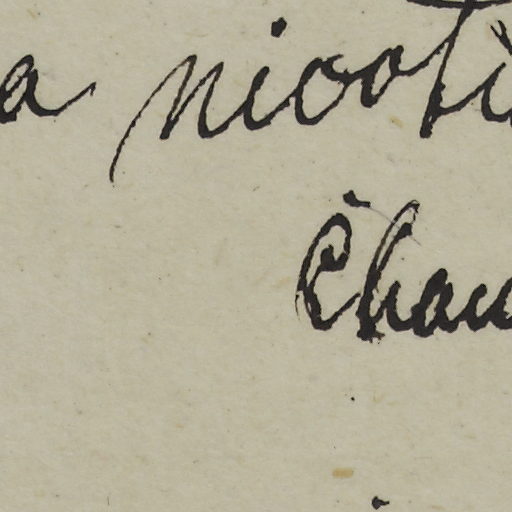 a nicoti
Chau